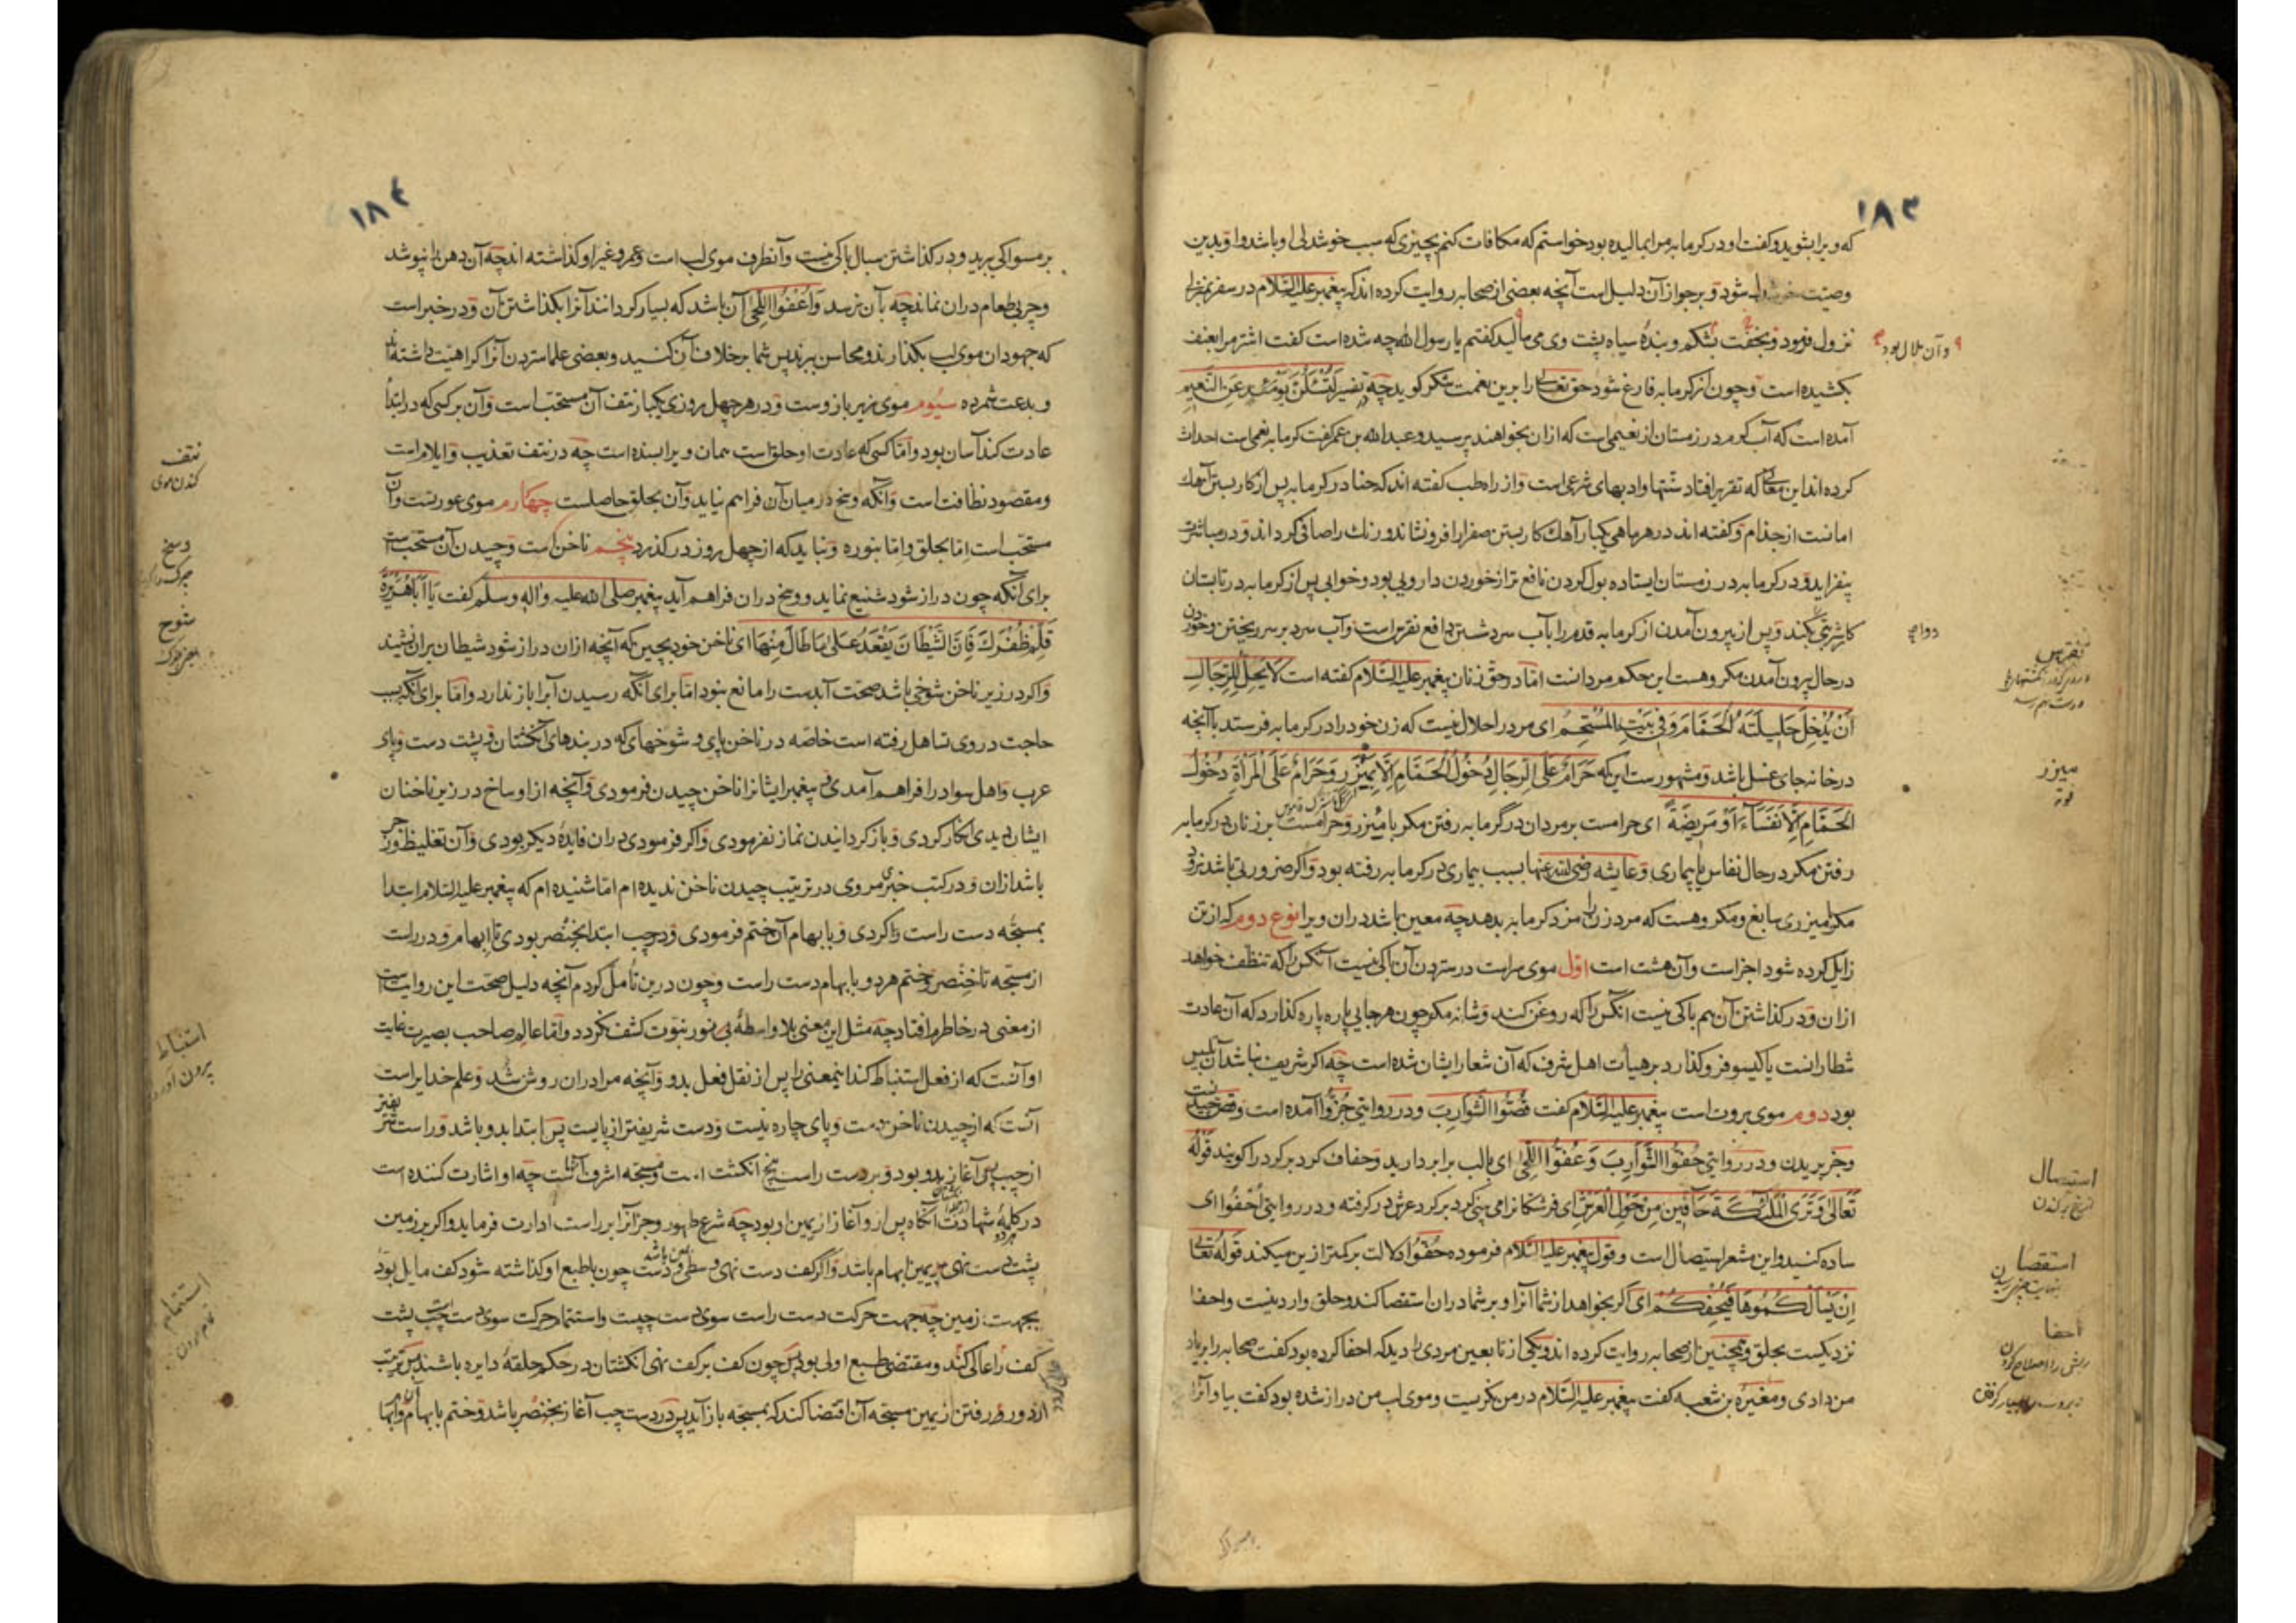 ۱۸۳
که ویرا بشوید و گفت او در گرمابه مرا بمالیده بود خواستم که مکافات کنم بچیزی که سبب خوشدلی او باشد واو بدین
وصیت شود و بر جواز آن دلیل است آنچه بعضی از صحابه روایت کرده اند که پیغمبر علیه السلام در سفر بمنزلی
نزول فرمود و بخفت بشکم و بندهٔ سیاه پشت وی می مالید گفتم یا رسول الله چه شده است گفت اشتر مرا بعنف
و آن بلال بود
بکشیده است و چون از گرمابه فارغ شود حق تعالی را برین نعمت شکر گوید چه در تفسیر لَتُسْئَلُنَّ یَوْمَئِذٍ عَنِ النَّعِیمِ
آمده است که آب گرم در زمستان از نعیمی است که ازان بخواهند پرسید و عبد الله بن عمر گفت گرمابه نعیمی است احداث
کرده اند این معانی که تقریر افتاد سنتها و ادبهای شرعی است و از راه طب گفته اند که حنا در گرمابه پس از کار بستن آهک
امانست از جذام و گفته اند در هر ماهی یکبار آهک کار بستن صفرا را فرو نشاند و رنگ را صافی گرداند و در مباشرت
بیفزاید و در گرمابه در زمستان ایستاده بول کردن نافع تر از خوردن دارویی بود و خوابی پس از گرمابه در تابستان
کار شربتی بکند و پس از بیرون آمدن از گرمابه قدم را بآب سرد شستن دافع نقرس است و آب سرد بر سر ریختن و خوردن
در حال بیرون آمدن مکروهست این حکم مردانست اما در حق زنان پیغمبر علیه السلام گفته است لَا یَحِلُّ لِلرِّجَالِ
اَنْ یُدْخِلَ حَلِیلَتَهُ الْحَمَّامَ وَفِی بَیْتِهِ الْمُسْتَحِمُّ ای مرد را حلال نیست که زن خود را در گرمابه فرستد با آنچه
در خانه جای غسل باشد و مشهورست این که حَرَامٌ عَلَی الرِّجَالِ دُخُولُ الْحَمَّامِ اِلَّا بِمِیْزَرٍ وَحَرَامٌ عَلَی الْمَرْأَةِ دُخُولُ
الْحَمَّامِ اِلَّا نُفَسَاءَ اَوْ مَرِیضَةً ای حرامست بر مردان در گرمابه رفتن مگر با میزر و حرامست بر زنان در گرمابه
رفتن مگر در حال نفاس یا بیماری و عایشه رضی الله عنها بسبب بیماری در گرمابه رفته بود و اگر ضرورتی باشد نرود
مگر با میزری سابغ و مکروهست که مرد زن را مزد گرمابه بدهد چه معین باشد دران ویرا نوع دوم که از تن
زایل کرده شود اجزاست و آن هشت است اول موی سر است در ستردن آن باکی نیست آنکس را که تنظف خواهد
ازان و در گذاشتن آن هم باکی نیست انکس را که روغن کند و شانه مگر چون هر جایی پاره پاره گذارد که آن عادت
شطارانست یا گیسو فرو گذارد بر هیأت اهل شرف که آن شعار ایشان شده است چه اگر شریف نباشد آن تلبیس
بود دوم موی بروت است پیغمبر علیه السلام گفت قُصُّوا الشَّوَارِبَ و در روایتی جُزُّوا آمده است و قص چیدنست
و جز بریدن و در روایتی حُفُّوا الشَّوَارِبَ وَ عْفُوا اللُّحٰی ای بالب برابر دارید و حفاف گرد بر گرد را گویند قوله
تَعَالٰی وَتَرَی الْمَلٰئِکَةَ حَافِّینَ مِنْ حَوْلِ الْعَرْشِ ای فرشتگانرا می بینی گرد بر گرد عرش در گرفته و در روایتی اَحْفُوا ای
ساده کنید و این مشعر استیصال است و قول پیغمبر علیه السلام فرموده حُفُّوا دلالت بر کمتر ازین میکند قوله تعالی
اِنْ یَسْأَلْکُمُوهَا فَیُحْفِکُمْ ای اگر بخواهد از شما آنرا و بر شما دران استقصا کند و حلق وارد نیست و احفا
نزدیکست بحلق و همچنین از صحابه روایت کرده اند و یکی از تابعین مردی را دید که احفا کرده بود گفت صحابه را بریاد
من دادی و مغیره بن شعبه گفت پیغمبر علیه السلام در من نگریست و موی لب من دراز شده بود گفت بیا و آنرا
نقرس
میزر
فوته
استیصال
از بیخ برکندن
استقصا
احفا
۱۸۴
بر مسواکی ببرید و در گذاشتن سبال باکی نیست و آنطرف موی لب است و عمر و غیر او گذاشته اند چه آن دهن را نپوشد
و چربی طعام دران نماند چه بآن نرسد وَاعْفُوا اللُّحٰی آن باشد که بسیار گردانند آنرا بگذاشتن آن و در خبر است
که جهودان موی لب بگذارند و محاسن ببرند پس شما بر خلاف آن کنید و بعضی علما ستردن آنرا کراهیت داشته اند
و بدعت شمرده سیوم موی زیر بازوست و در هر چهل روزی یکبار نتف آن مستحبّ است و آن بر کسی که در ابتدا
عادت کند آسان بود و اما کسی که عادت او حلق است همان ویرا بسنده است چه در نتف تعذیب و ایلام است
و مقصود نظافت است و آنکه وسخ در میان آن فراهم نیاید و آن بحلق حاصلست چهارم موی عورتست و آن
مستحبّ است امّا بحلق و امّا بنوره و نباید که از چهل روز در گذرد پنجم ناخن است و چیدن آن مستحبّ است
برای آنکه چون دراز شود شنیع نماید و وسخ دران فراهم آید پیغمبر صلی الله علیه واله وسلم گفت یَا اَبَا هُرَیْرَةَ
قَلِّمْ ظُفْرَکَ فَاِنَّ الشَّیْطَانَ یَقْعُدُ عَلٰی مَا طَالَ مِنْهَا ای ناخن خود بچین که آنچه ازان دراز شود شیطان بران نشیند
و اگر در زیر ناخن شوخی باشد صحت آبدست را مانع نبود امّا برای آنکه رسیدن آبرا باز ندارد و امّا برای آنکه بسبب
حاجت در وی تساهل رفته است خاصّه در ناخن پای و شوخهای که در بندهای انگشتان و پشت دست و پای
عرب و اهل سواد را فراهم آمدی و پیغمبر ایشانرا ناخن چیدن فرمودی و آنچه از اوساخ در زیر ناخنان
ایشان دیدی انکار کردی و باز گردانیدن نماز نفرمودی و اگر فرمودی دران فایدهٔ دیگر بودی و آن تغلیظ و زجر
باشد ازان و در کتب خبری مروی در ترتیب چیدن ناخن ندیده ام امّا شنیده ام که پیغمبر علیه السلام ابتدا
بمسبّحه دست راست کردی و بابهام آن ختم فرمودی و در چپ ابتدا بخنصر بودی تا ابهام و در راست
از مسبّحه تا خنصر و ختم هر دو بابهام دست راست و چون درین تأمّل کردم آنچه دلیل صحّت این روایت است
از معنی در خاطرم افتاد چه مثل این معنی بلا واسطهٔ بی نور نبوّت کشف نگردد و امّا عالم صاحب بصیرت غایت
او آنست که از فعل استنباط کند اینمعنی را پس از نقل فعل بدو و آنچه مرا دران روشن شد و علم خدایراست
آنست که از چیدن ناخن دست و پای چاره نیست و دست شریفتر از پایست پس ابتدا بدو باشد و راست شریفتر
از چپ پس آغاز بدو بود و بر دست راست پنج انگشت است و مسبّحه اشرف آنهاست چه او اشارت کننده است
در کلمهٔ شهادت آنگاه پس ازو آغاز از یمین او بود چه شرع طهور و جز آنرا بر راست ادارت فرماید و اگر بر زمین
پشت دست نهی یمین ابهام باشد و اگر کف دست نهی وسطی و دست چون باطبع او گذاشته شود کف مایل بود
بجهت زمین چه جهت حرکت دست راست سوی دست چپست و استتمام حرکت سوی دست چپ پشت
کف را عالی کند و مقتضی طبع اولی بود پس چون کف بر کف نهی انگشتان در حکم حلقه دایره باشند پس ترتیب
از دور و رفتن از یمین مسبّحه آن اقتضا کند که بمسبّحه باز آید پس در دست چپ آغاز بخنصر باشد و ختم بابهام و ابهام
نتف
کندن موی
وسخ
شوخ
استنباط
بیرون آوردن
استتمام